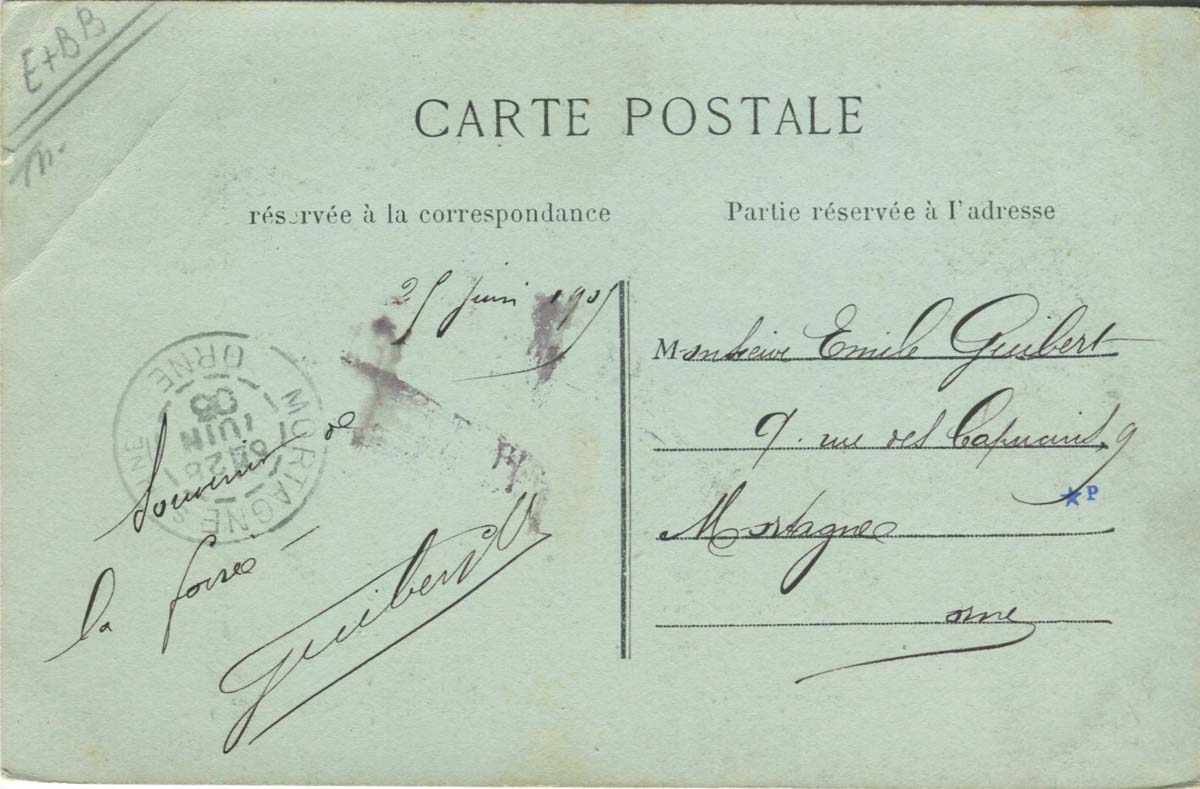 E+BB
m.
CARTE POSTALE
réservée à la correspondance
Partie réservée à l'adresse
25 juin 1905
Souvenir de
la foire
Guibert
Monsieur Emile Guibert
9. rue des Capucins, 9
Mortagne
orne
★P
MORTAGNE
ORNE
26
JUIN